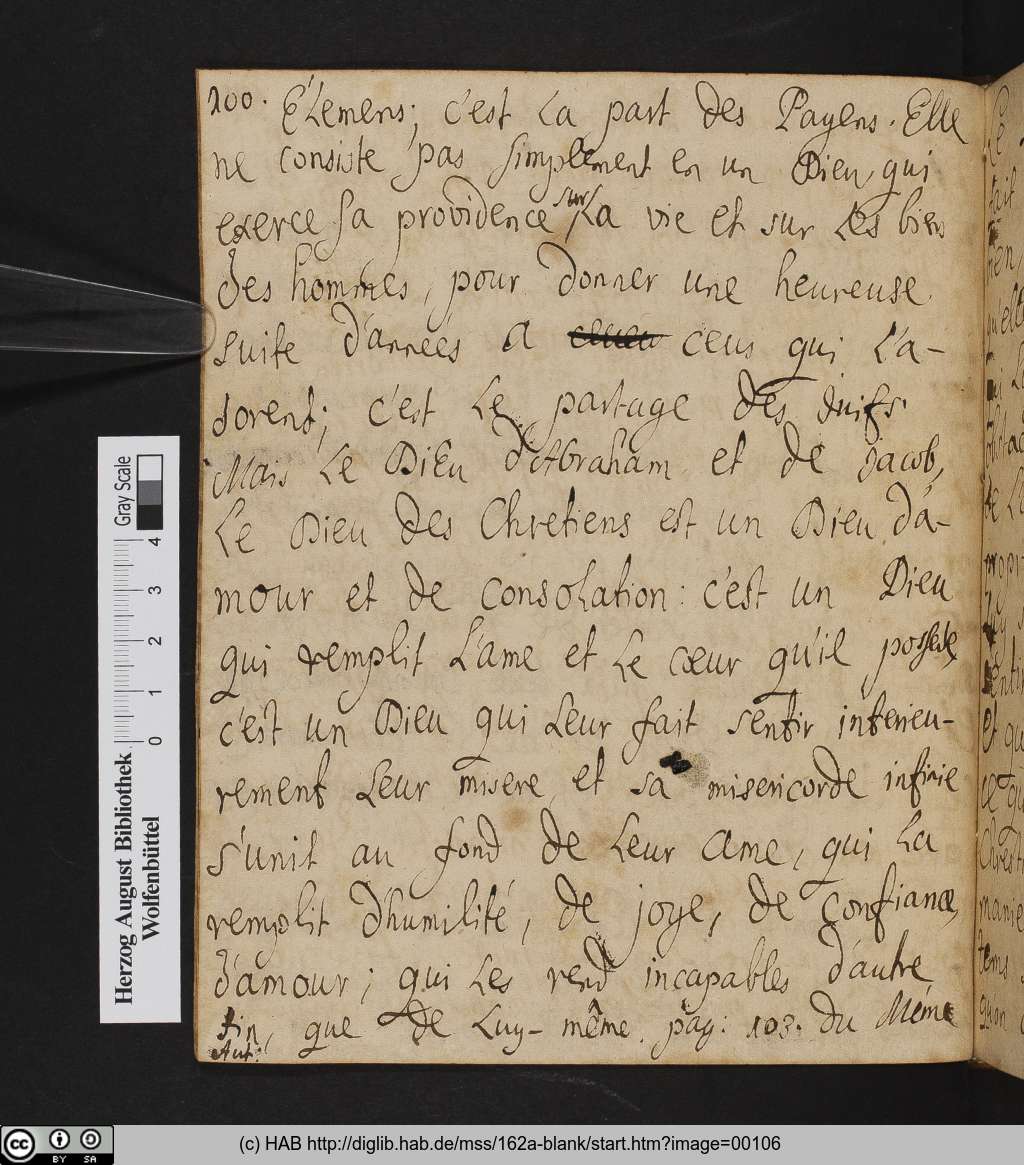 100. Elemens; c'est La part des Payens. Elle
ne consiste pas simplement en un Dieu, qui
exerce sa providence sur La vie et sur Les biens
des hommes, pour donner une heureuse
suite d'années a ceus qui L'a-
dorent; c'est Le partage des Juifs.
Mais Le Dieu d'Abraham et de Jacob,
Le Dieu des Chretiens est un Dieu d'a-
mour et de consolation: c'est un Dieu
qui remplit L'ame et Le cœur qu'il possede,
c'est un Dieu qui Leur fait sentir interieu-
rement Leur misere, et sa misericorde infinie
s'unit au fond de Leur ame, qui La
remplit d'humilité, de joye, de confiance,
d'amour; qui Les rend incapables d'autre
fin, que de Luy-même. pag: 103. du Méme
Aut:
Herzog August Bibliothek
Wolfenbüttel
0 1 2 3 4
Gray Scale
(c) HAB http://diglib.hab.de/mss/162a-blank/start.htm?image=00106
cc BY SA